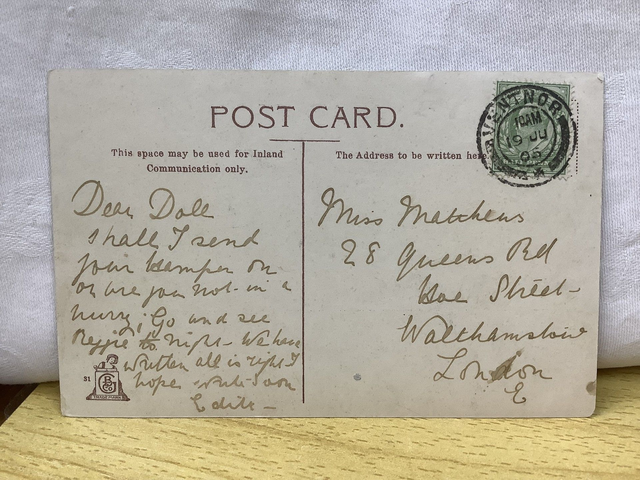 POST CARD.
This space may be used for Inland
Communication only.
The Address to be written here.
VENTNOR
19 JU
Dear Doll
shall I send
your hamper on
or are you not in a
hurry. Go and see
Reggie to night - We have
written all is right I
hope write soon
Edith -
Miss Matthews
28 Queens Rd
Hoe Street -
Walthamstow
London
E
31